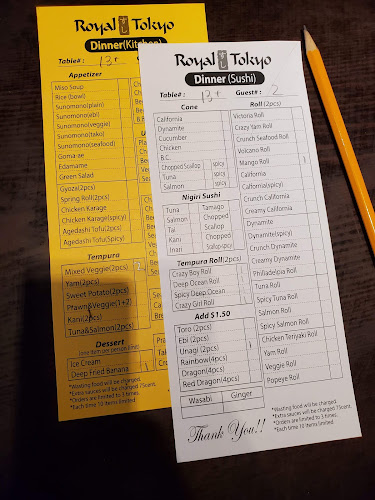 Royal すし Tokyo
Dinner(Kitchen)
Table# : 13+
Appetizer
Miso Soup
Rice (bowl)
Sunomono(plain)
Sunomono(ebi)
Sunomono(veggie)
Sunomono(tako)
Sunomono(seafood)
Goma-ae
Edamame
Green Salad
Gyoza(2pcs)
Spring Roll(2pcs)
Chicken Karage
Chicken Karage(spicy)
Agedashi Tofu(2pcs)
Agedashi Tofu(Spicy)
Tempura
Mixed Veggie(2pcs)
Yam(2pcs)
Sweet Potato(2pcs)
Prawn&Veggie(1+2)
Kani(2pcs)
Tuna&Salmon(2pcs)
Dessert
(one item per person limit)
Ice Cream
Deep Fried Banana
*Wasting food will be charged.
*Extra sauces will be charged 75cents.
*Orders are limited to 3 times.
*Each time 10 items limited
Royal すし Tokyo
Dinner (Sushi)
Table# : 13+ Guest# : 2
Cone
California
Dynamite
Cucumber
Chicken
B.C.
Chopped Scallop spicy
Tuna spicy
Salmon spicy
Nigiri Sushi
Tuna Tamago
Salmon Chopped
Tai Scallop
Kani Chopped
Inari Scallop spicy
Tempura Roll(2pcs)
Crazy Boy Roll
Deep Ocean Roll
Spicy Deep Ocean
Crazy Girl Roll
Add $1.50
Toro (2pcs)
Ebi (2pcs)
Unagi (2pcs)
Rainbow(4pcs)
Dragon(4pcs)
Red Dragon(4pcs)
Wasabi Ginger
Roll (2pcs)
Victoria Roll
Crazy Yam Roll
Crunch Seafood Roll
Volcano Roll
Mango Roll
California
California(spicy)
Crunch California
Creamy California
Dynamite
Dynamite(spicy)
Crunch Dynamite
Creamy Dynamite
Philadelpia Roll
Tuna Roll
Spicy Tuna Roll
Salmon Roll
Spicy Salmon Roll
Chicken Teriyaki Roll
Yam Roll
Veggie Roll
Popeye Roll
Thank You!!
*Wasting food will be charged
*Extra sauces will be charged 75cent.
*Orders are limited to 3 times.
*Each time 10 items limited